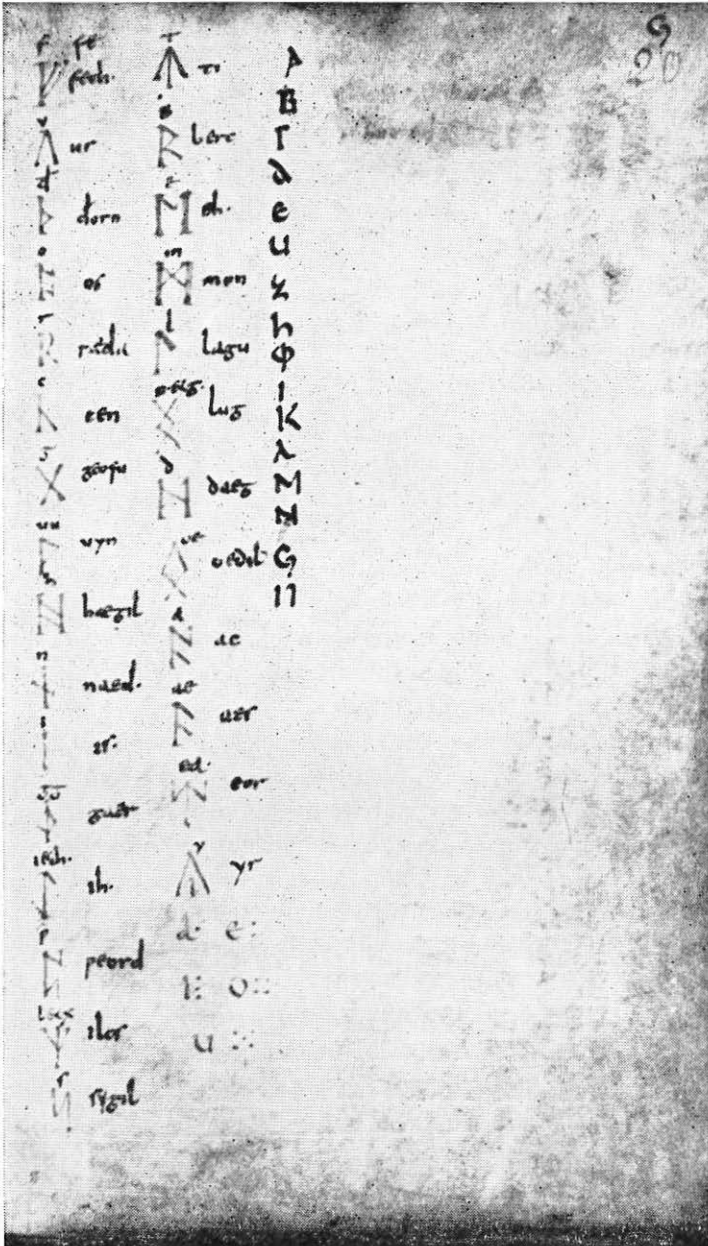 f fe
ᚠ fech.
u
ᚢ ur
đ
ᚦ đorn
o
os
r
ᚱ
c
ᚳ cen
g
ᚷ geofu
uu
ᚹ uyn
h
ᚻ haegil
n
ᚾ naed.
i
ᛁ is.
gg
ᛄ gaer
ᛇ ih.
p
ᛈ peord
ᛉ ilcs
s
ᛋ sygil
T
ᛏ ti
B
ᛒ berc
e
ᛖ eh.
m
ᛗ mon
l
ᛚ lagu
ᛝ Iug
d
ᛞ daeg
oe
ᛟ oedil
a
ᚪ ac
ae
ᚫ aer
ea.
ᛠ eor
y
ᚣ yr
a· e:
o::
u
A
B
Γ
d
e
u
z
h
Φ
I
K
λ
M
N
G
Π
G
20